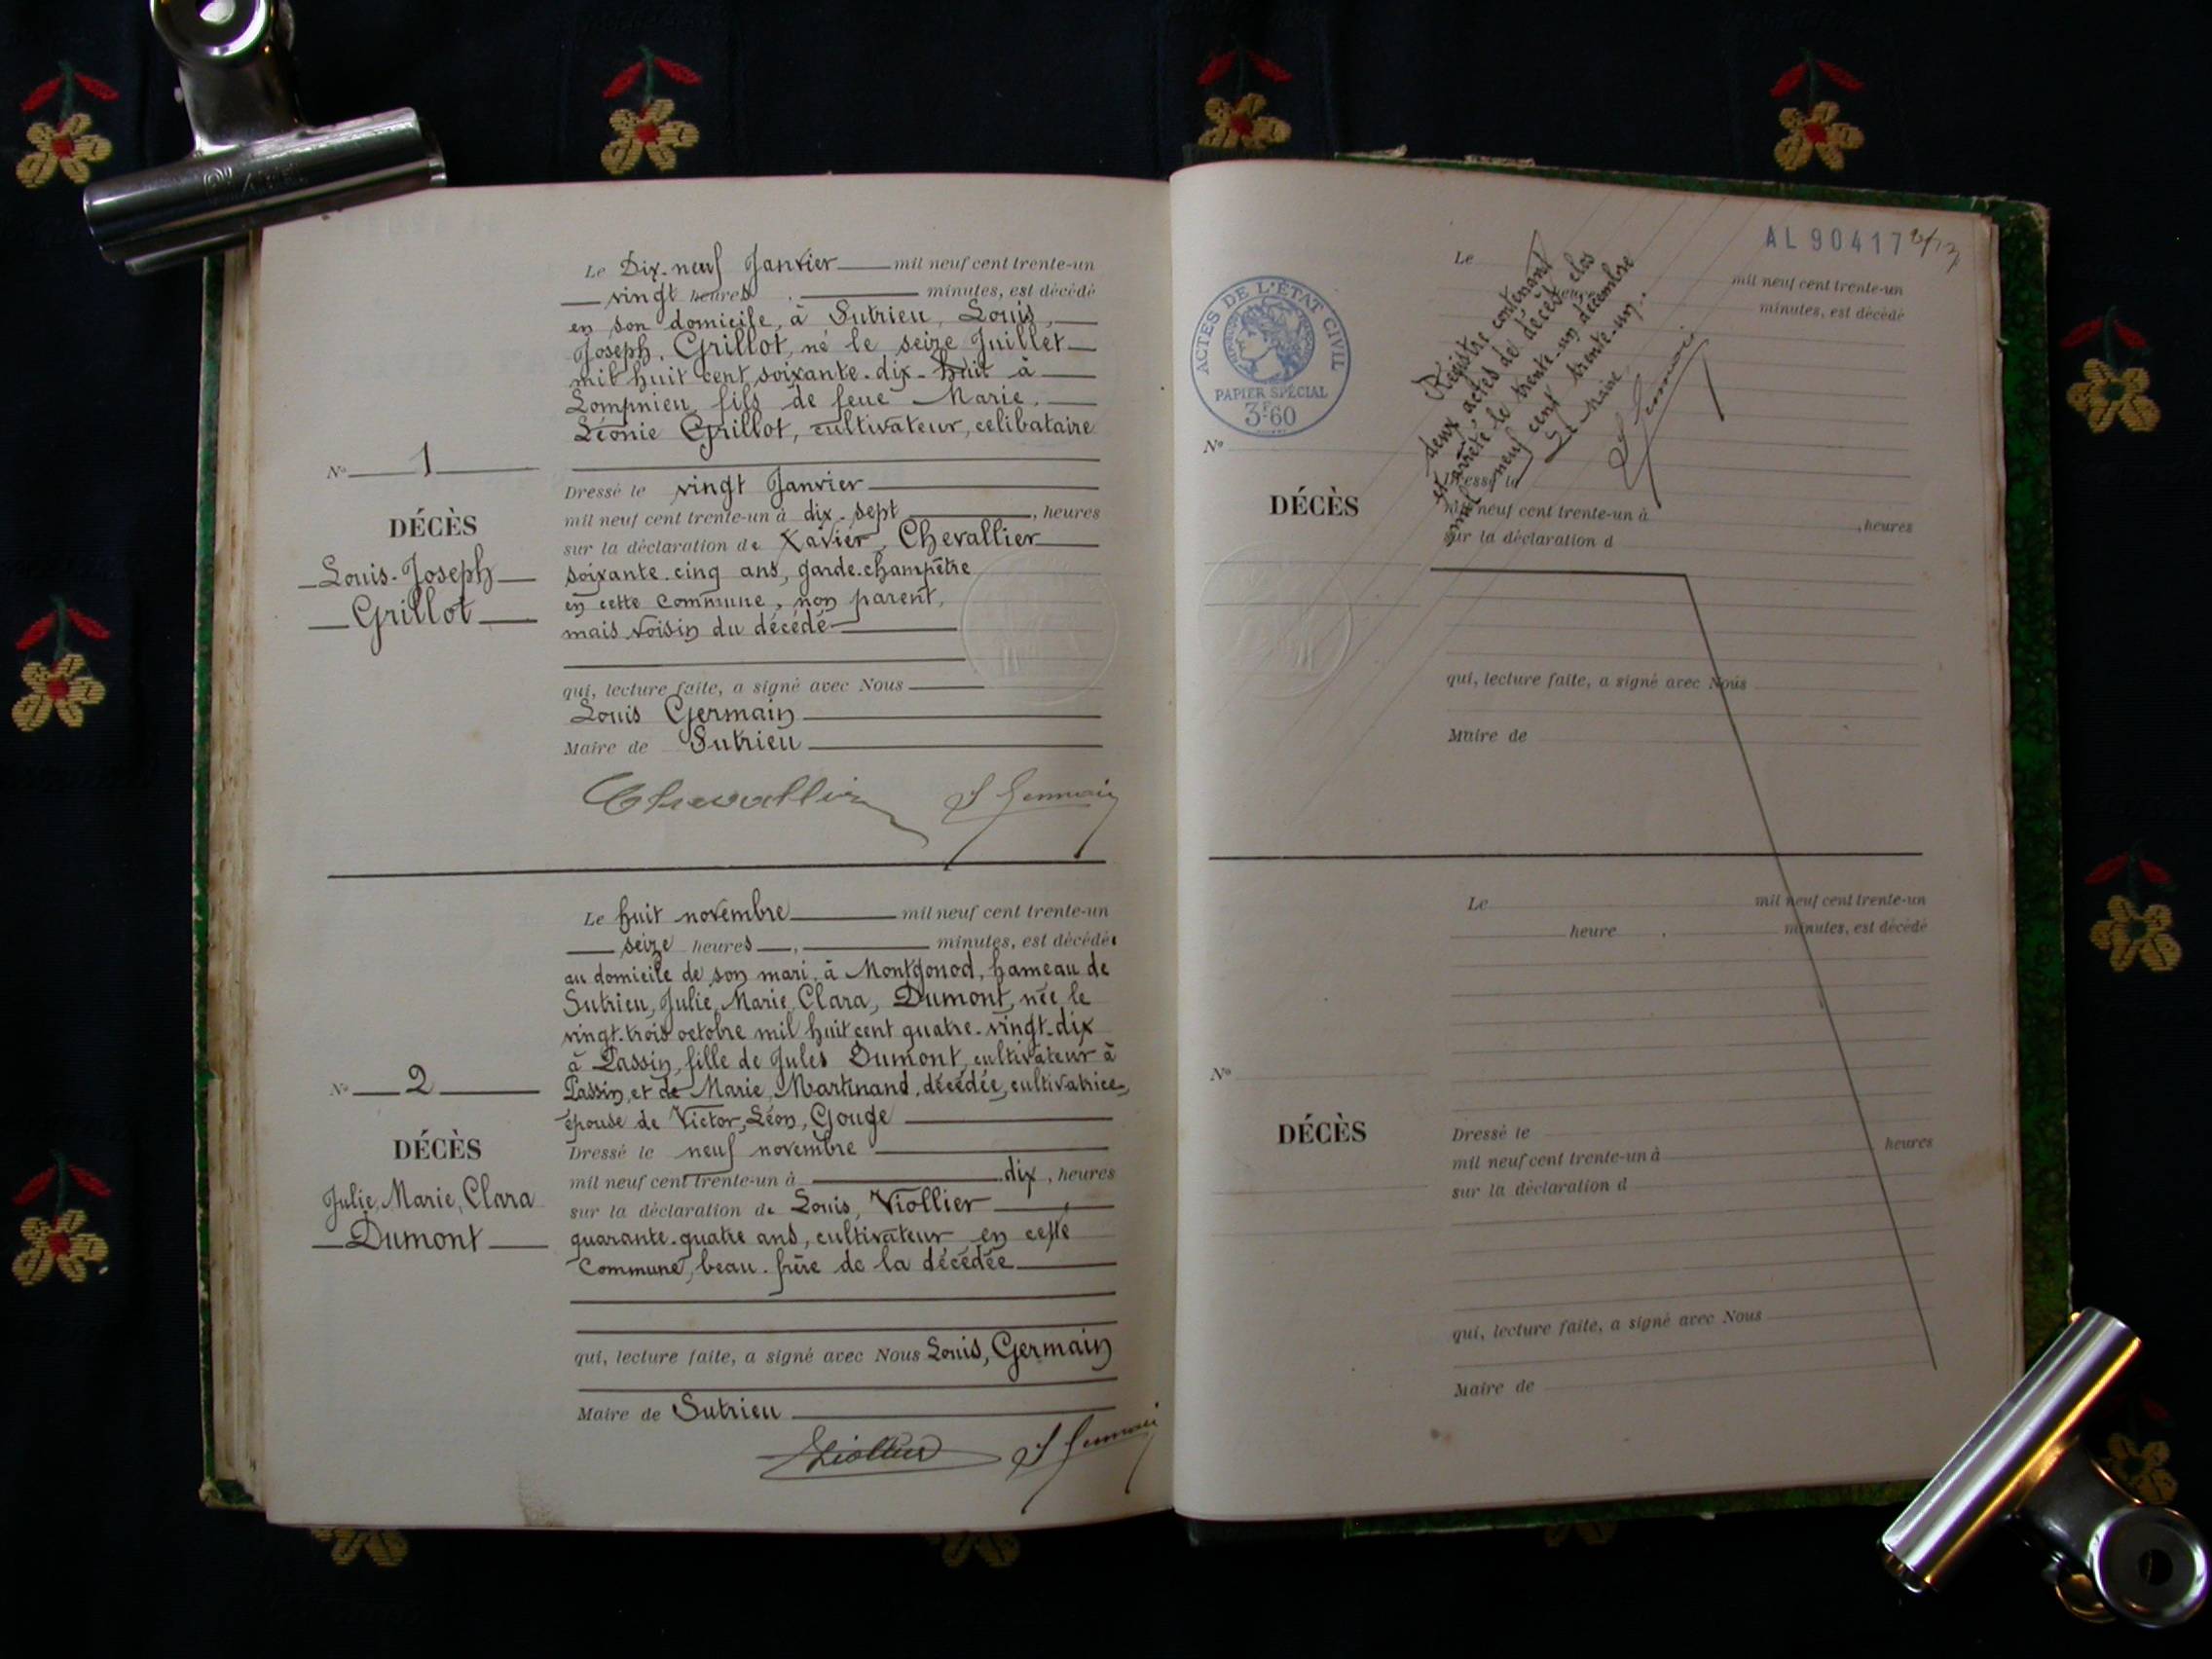 Le Dix-neuf Janvier mil neuf cent trente-un
vingt heures, minutes, est décédé
en son domicile, à Sutrieu, Louis,
Joseph, Grillot, né le seize Juillet
mil huit cent soixante-dix-huit à
Lompnieu, fils de feue Marie,
Léonie Grillot, cultivateur, célibataire
N° 1
DÉCÈS
Louis-Joseph
Grillot
Dressé le vingt Janvier
mil neuf cent trente-un à dix-sept, heures
sur la déclaration de Xavier, Chevallier
soixante-cinq ans, garde-champêtre
en cette commune, non parent,
mais voisin du décédé
qui, lecture faite, a signé avec Nous
Louis Germain
Maire de Sutrieu
Chevallier L Germain
Le huit novembre mil neuf cent trente-un
seize heures, minutes, est décédée
au domicile de son mari, à Montgonod, hameau de
Sutrieu, Julie, Marie, Clara, Dumont, née le
vingt-trois octobre mil huit cent quatre-vingt-dix
à Passin, fille de Jules Dumont, cultivateur à
Passin, et de Marie, Martinand, décédée, cultivatrice,
épouse de Victor, Léon, Gouge
N° 2
DÉCÈS
Julie, Marie, Clara
Dumont
Dressé le neuf novembre
mil neuf cent trente-un à dix, heures
sur la déclaration de Louis, Viollier
quarante-quatre ans, cultivateur en cette
Commune, beau-frère de la décédée
qui, lecture faite, a signé avec Nous Louis, Germain
Maire de Sutrieu
Viollier L Germain
AL 90417
Le mil neuf cent trente-un
minutes, est décédé
ACTES DE L'ÉTAT CIVIL
PAPIER SPÉCIAL
3F60
Registre contenant
deux actes de décès clos
et arrêté le trente-un décembre
mil neuf cent trente-un.
Le Maire,
L Germain
N°
DÉCÈS
Dressé le
mil neuf cent trente-un à, heures
sur la déclaration d
qui, lecture faite, a signé avec Nous
Maire de
Le mil neuf cent trente-un
heure, minutes, est décédé
N°
DÉCÈS
Dressé le
mil neuf cent trente-un à heures
sur la déclaration d
qui, lecture faite, a signé avec Nous
Maire de